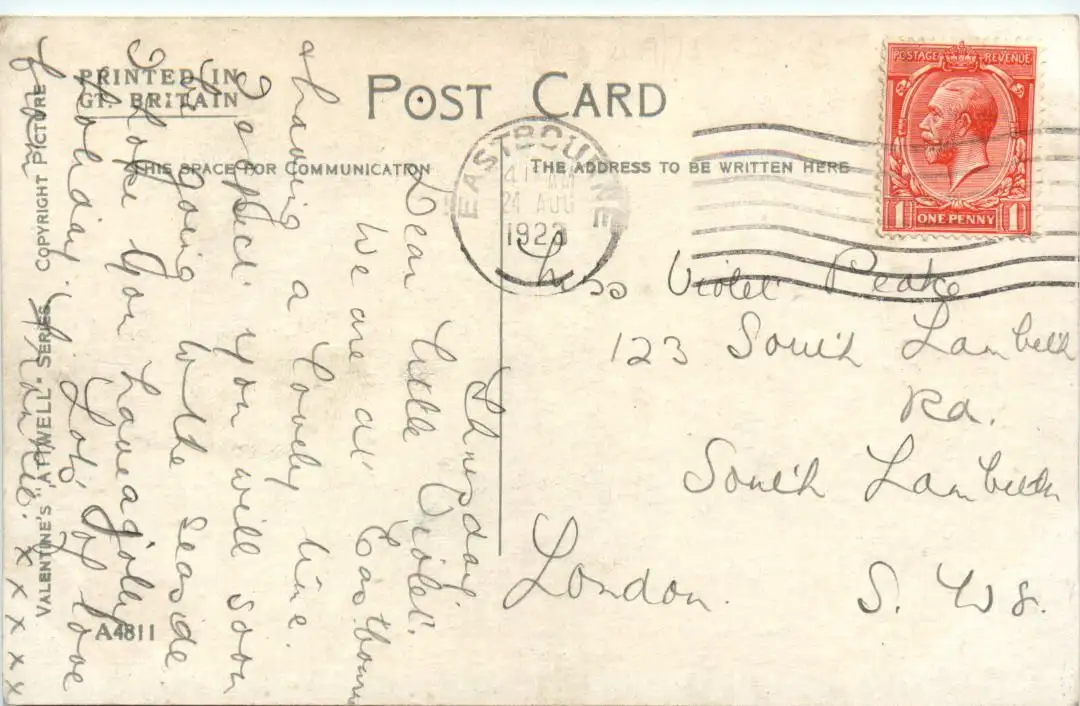 PRINTED IN
GT. BRITAIN
POST CARD
THIS SPACE FOR COMMUNICATION
THE ADDRESS TO BE WRITTEN HERE
POSTAGE REVENUE
1 ONE PENNY 1
EASTBOURNE
AM
24 AUG
1923
Thursday.
Dear little Violet.
We are at Eastbourne
& having a lovely time.
I expect you will soon
be going to the seaside
I hope you have a jolly
holiday. Lots of love
from x x x x x
Miss Violet Peake
123 South Lambeth
Rd.
South Lambeth
London.
S. W 8.
VALENTINE'S "ATTWELL" SERIES COPYRIGHT PICTURE
A4811